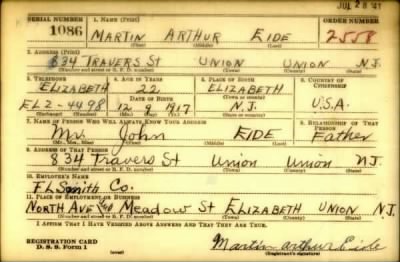 JUL 28 '41
SERIAL NUMBER 1. NAME (Print) ORDER NUMBER
1086 MARTIN ARTHUR EIDE 2558
(First) (Middle) (Last)
2. ADDRESS (Print)
834 TRAVERS St UNION UNION N.J.
(Number and street or R. F. D. number) (Town) (County) (State)
3. TELEPHONE 4. AGE IN YEARS 5. PLACE OF BIRTH 6. COUNTRY OF CITIZENSHIP
ELIZABETH 22 ELIZABETH
DATE OF BIRTH
EL2-4498 12 9 1917 N.J. U.S.A.
(Exchange) (Number) (Mo.) (Day) (Yr.) (State or country)
7. NAME OF PERSON WHO WILL ALWAYS KNOW YOUR ADDRESS 8. RELATIONSHIP OF THAT PERSON
Mr. John EIDE Father
(Mr., Mrs., Miss) (First) (Middle) (Last)
9. ADDRESS OF THAT PERSON
834 Travers St Union Union N.J.
(Number and street or R. F. D. number) (Town) (County) (State)
10. EMPLOYER'S NAME
F L Smith Co.
11. PLACE OF EMPLOYMENT OR BUSINESS
NORTH AVE Meadow St ELIZABETH UNION N.J.
(Number and street or R. F. D. number) (Town) (County) (State)
I AFFIRM THAT I HAVE VERIFIED ABOVE ANSWERS AND THAT THEY ARE TRUE.
REGISTRATION CARD
D. S. S. Form 1 (over) Martin Arthur Eide
(Registrant's signature)